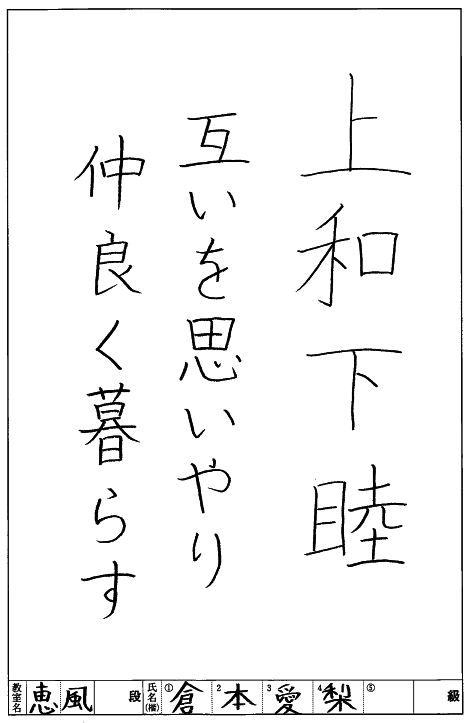 上和下睦
互いを思いやり
仲良く暮らす
教室名 恵風 段 氏名(楷) ① 倉 2 本 3 愛 4 梨 ⑤ 級